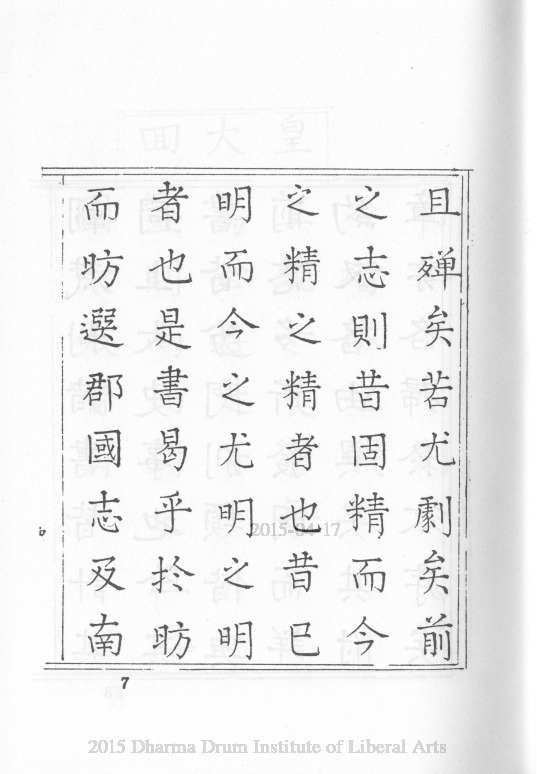 且殫矣若尤劇矣前
之志則昔固精而今
之精之精者也昔已
明而今之尤明之明
者也是書曷乎於昉
而昉選郡國志及南
2015-04-17
7
2015 Dharma Drum Institute of Liberal Arts